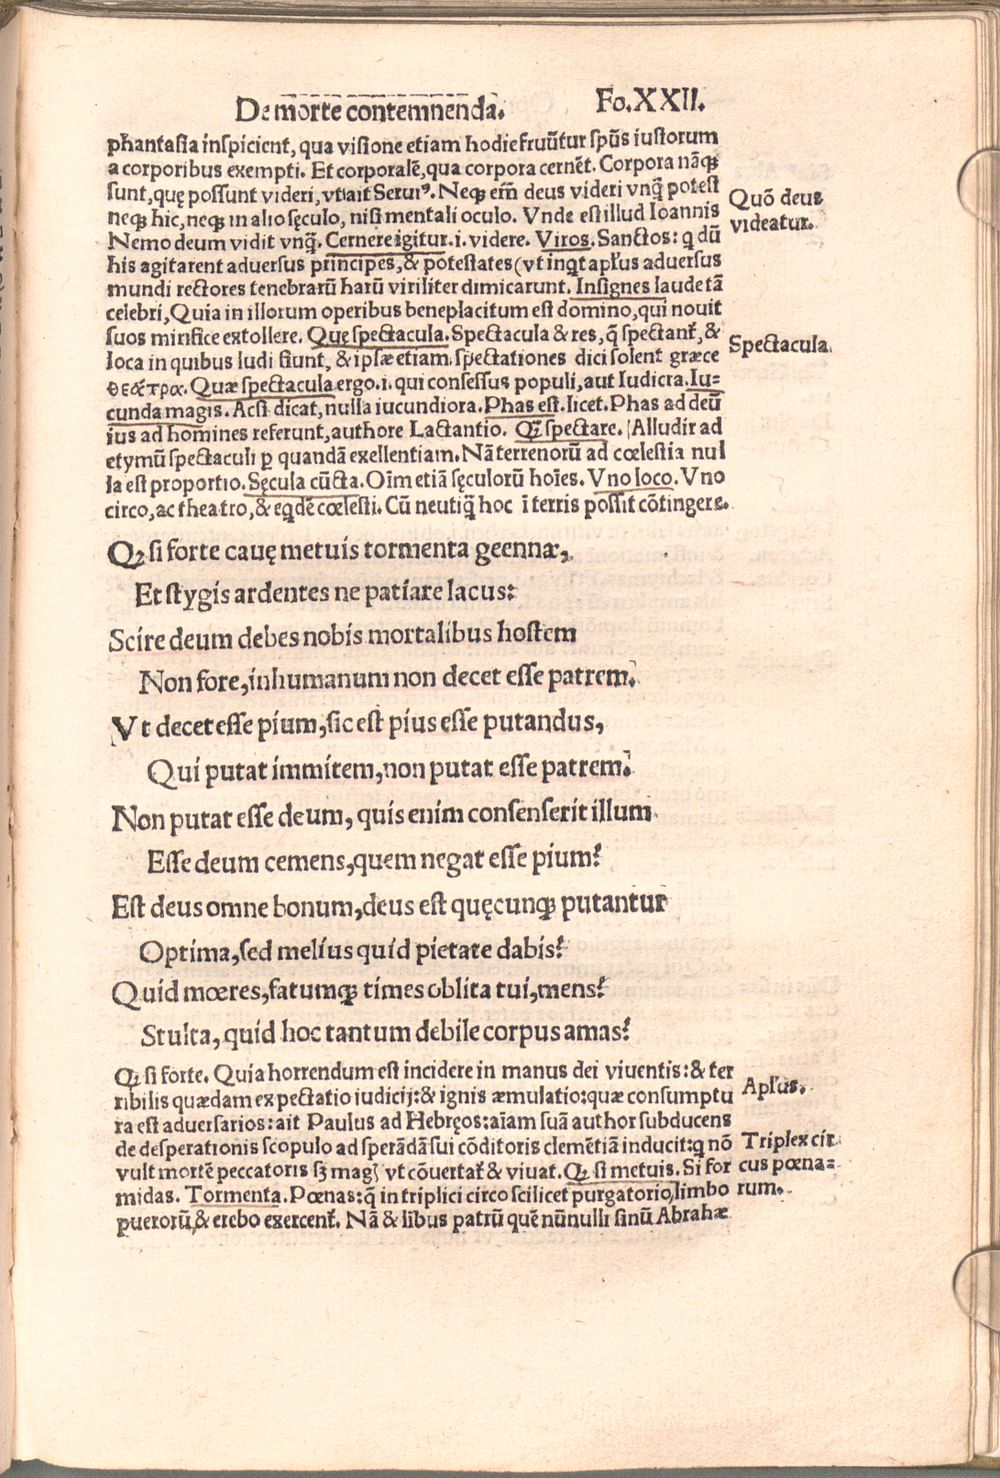 De morte contemnenda.
Fo.XXII.
phantasia inspicient, qua visione etiam hodie fruūtur spūs iustorum
a corporibus exempti. Et corporalē, qua corpora cernēt. Corpora nāqꝫ
sunt, quę possunt videri, vt ait Seruiꝰ. Neqꝫ em̄ deus videri vnq̄ potest
neqꝫ hic, neqꝫ in alio sęculo, nisi mentali oculo. Vnde est illud Ioannis
Quō deus
videatur.
Nemo deum vidit vnq̄. Cernere igitur .i. videre. Viros. Sanctos: q dū
his agitarent aduersus principes, & potestates (vt inqt apłus aduersus
mundi rectores tenebrarū harū viriliter dimicarunt. Insignes laude tā
celebri, Quia in illorum operibus beneplacitum est domino, qui nouit
suos mirifice extollere. Quę spectacula. Spectacula & res, q̄ spectant̄, &
Spectacula.
loca in quibus ludi fiunt, & ipsæ etiam spectationes dici solent græce
θεάτρα. Quæ spectacula ergo .i. qui consessus populi, aut Iudicra. Iu=
cunda magis. Acsi dicat, nulla iucundiora. Phas est. licet. Phas ad deū
ius ad homines referunt, authore Lactantio. Qꝫ spectare. Alludir ad
etymū spectaculi ꝑ quandā exellentiam. Nā terrenorū ad cœlestia nul
la est proportio. Sęcula cūcta. Oīm etiā sęculorū hoīes. Vno loco. Vno
circo, ac theatro, & eqdē cœlesti. Cū neutiq̄ hoc ī terris possit cōtingere.
Qꝫ si forte cauę metuis tormenta geennæ,
Et stygis ardentes ne patiare lacus:
Scire deum debes nobis mortalibus hostem
Non fore, inhumanum non decet esse patrem.
Vt decet esse pium, sic est pius esse putandus,
Qui putat immitem, non putat esse patrem.
Non putat esse deum, quis enim consenserit illum
Esse deum cemens, quem negat esse pium?
Est deus omne bonum, deus est quęcunqꝫ putantur
Optima, sed melius quid pietate dabis?
Quid mœres, fatumqꝫ times oblita tui, mens?
Stulta, quid hoc tantum debile corpus amas?
Qꝫ si forte. Quia horrendum est incidere in manus dei viuentis: & ter
ribilis quædam expectatio iudicij: & ignis æmulatio: quæ consumptu
Apłus.
ra est aduersarios: ait Paulus ad Hebręos: aīam suā author subducens
de desperationis scopulo ad sperādā sui cōditoris clemētiā inducit: q nō
vult mortē peccatoris sꝫ mag̃ vt cōuertat̄ & viuat. Qꝫ si metuis. Si for
Triplex cir
cus pœna=
rum.
midas. Tormenta. Pœnas: q̄ in triplici circo scilicet purgatorio, limbo
puerorū, & erebo exercent̄. Nā & libus patrū quē nūnulli sinū Abrahæ